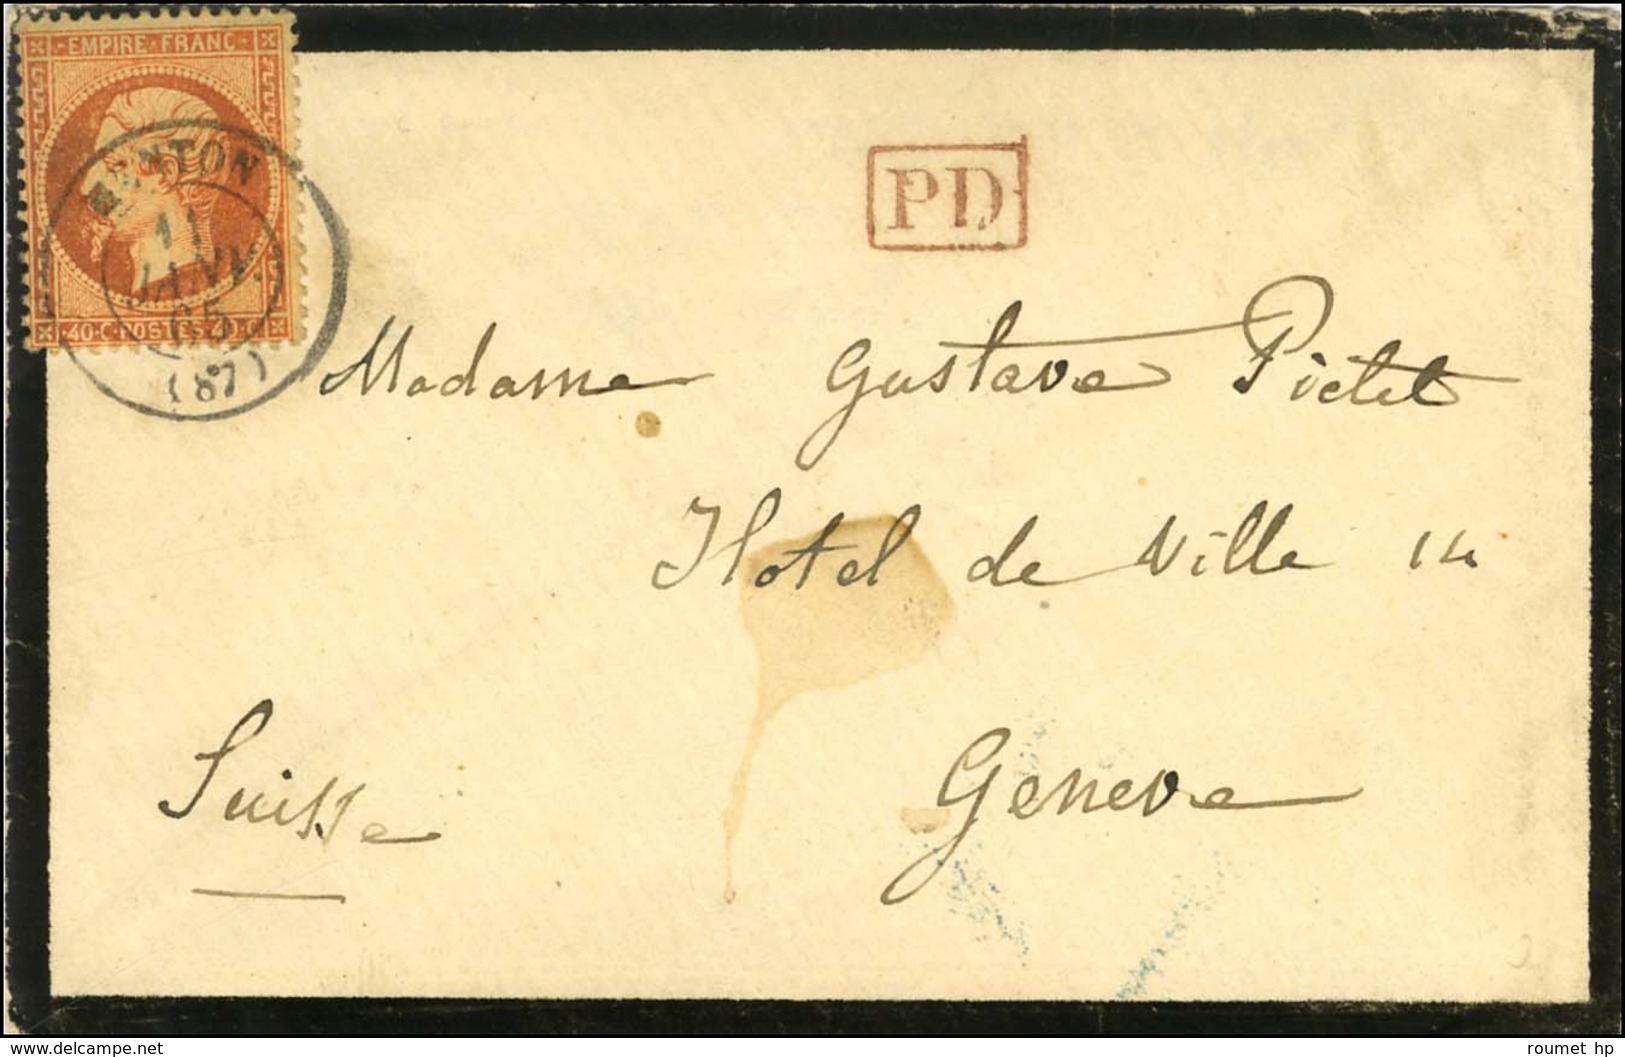 EMPIRE FRANC
MENTON
11
JANV.
65
(87)
40 C POSTES 40 C
PD
Madame Gustave Pictet
Hotel de Ville 14
Geneve
Suisse
www.delcampe.net
roumet hp